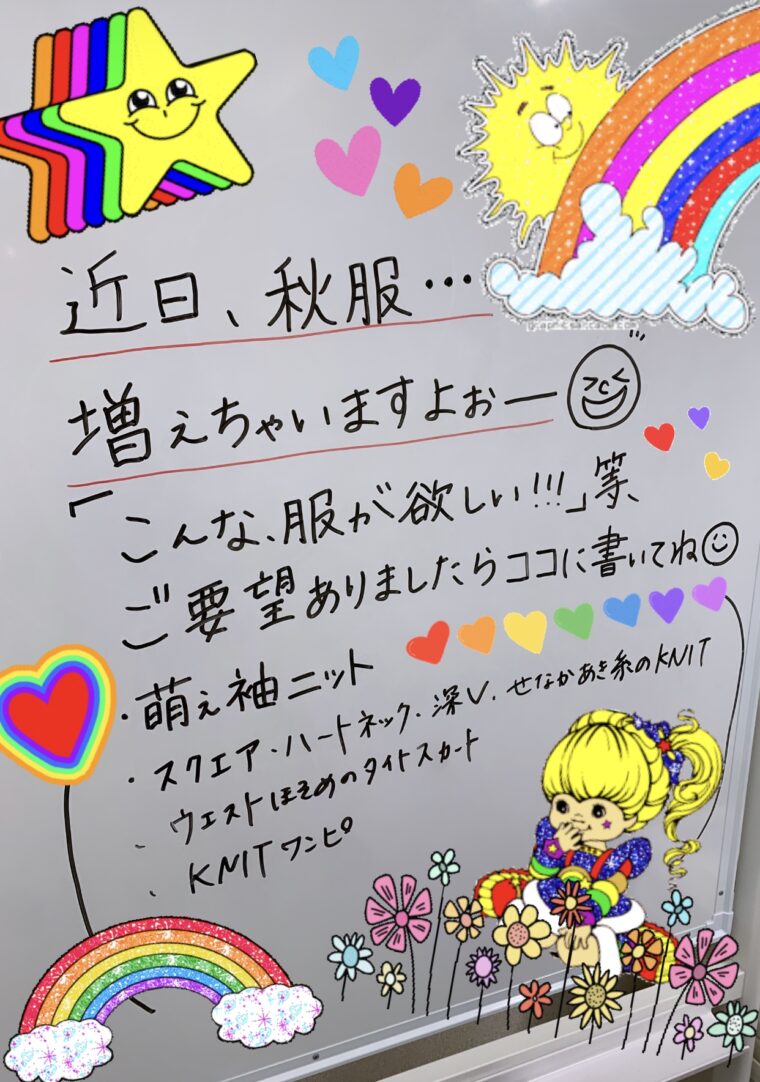 近日、秋服…
増えちゃいますよぉー
「こんな、服が欲しい!!!」等、
ご要望ありましたらココに書いてね
・萌え袖ニット
・スクエア・ハートネック・深V、せなかあき系のKNIT
、ウエストほそめのタイトスカート
、KNITワンピ